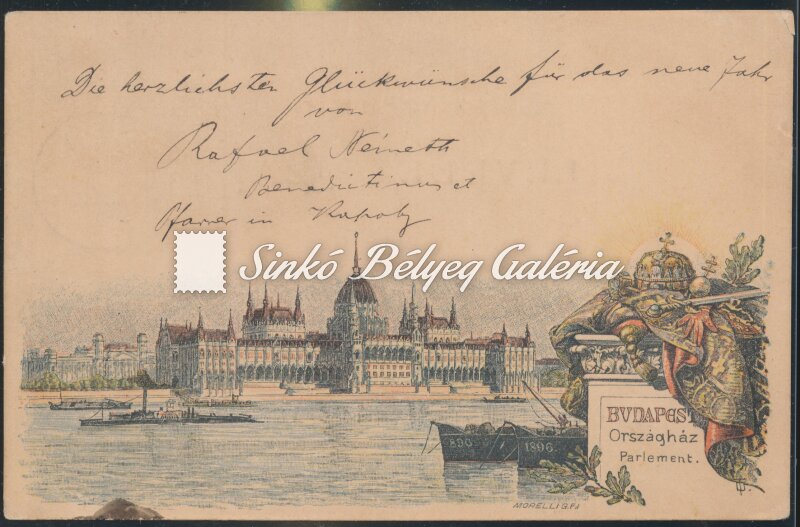 Die herzlichsten Glückwünsche für das neue Jahr
von
Rafael Németh
Benedictinus et
Pfarrer in Kapoly
Sinkó Bélyeg Galéria
890
1896
BUDAPEST
Országház
Parlement.
MORELLI G. F.